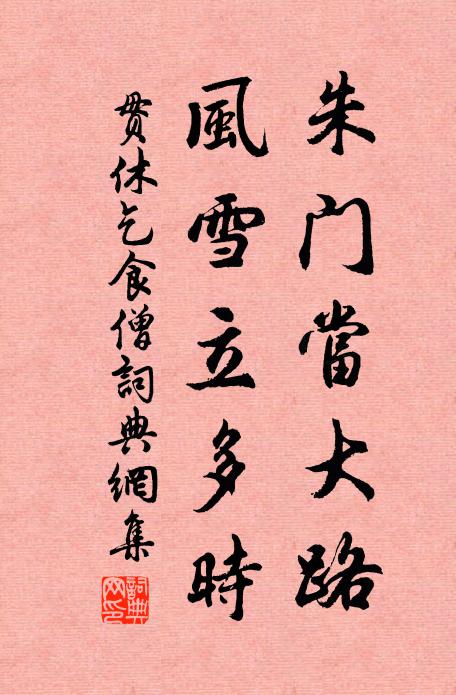 朱门當大路
風雪立多時
贯休乞食僧詞典網集
詞典網印